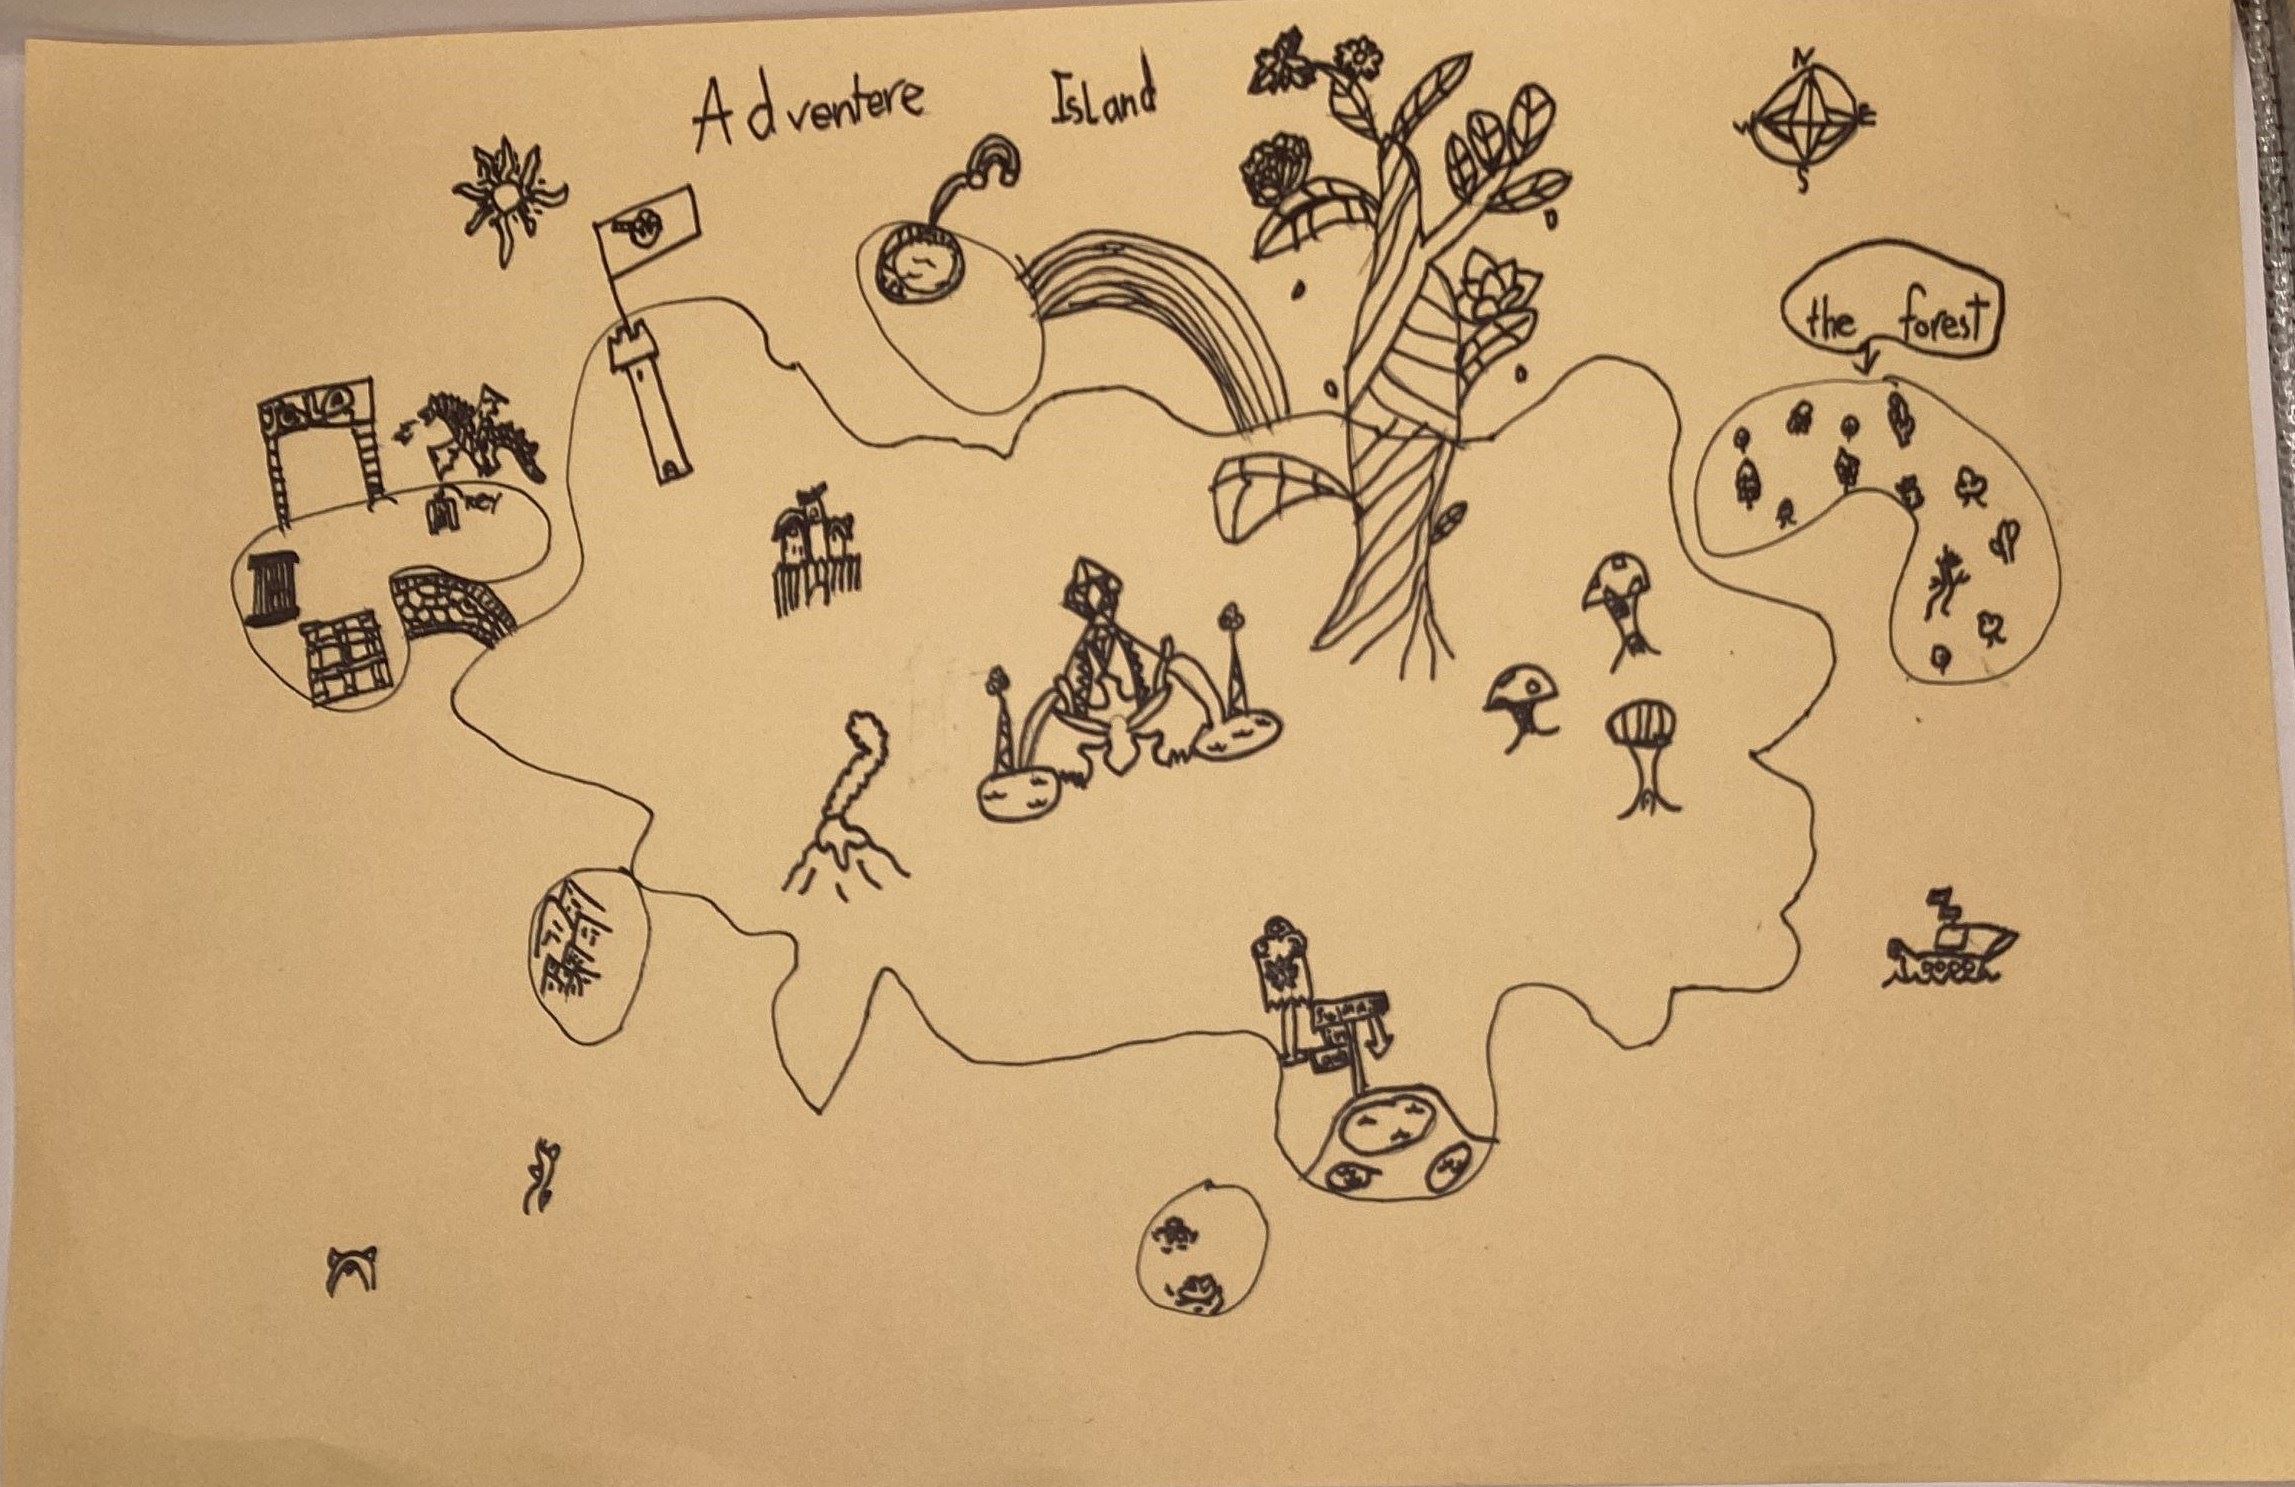 Adventere Island
N
W E
S
the forest
JAIL
KEY